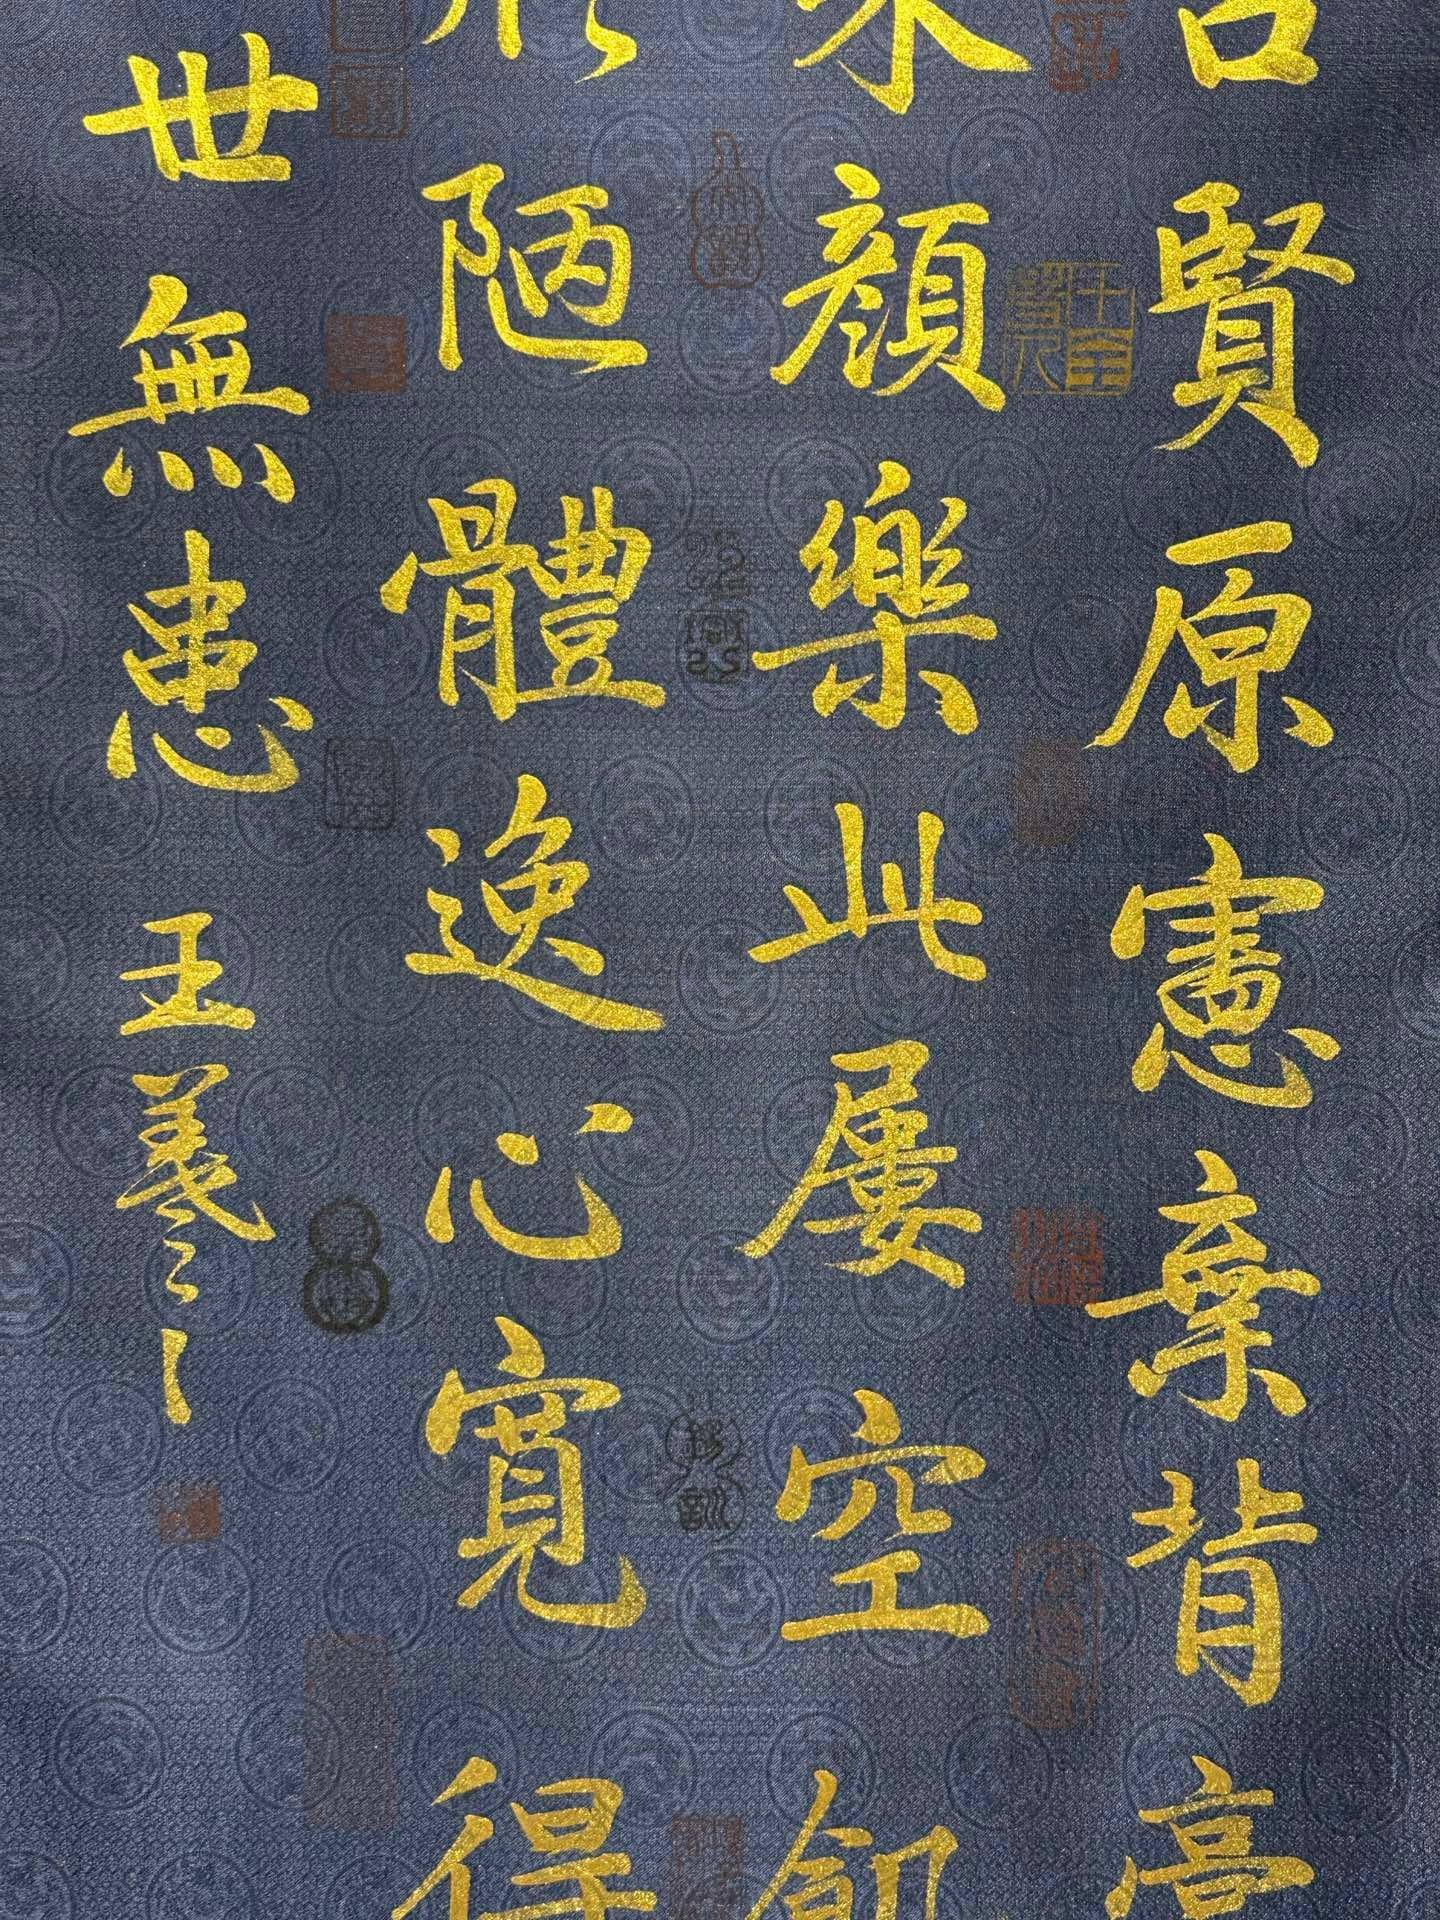 賢原憲棄背亭
顏樂此屢空
陋體逸心寬得
世無患 王羲之